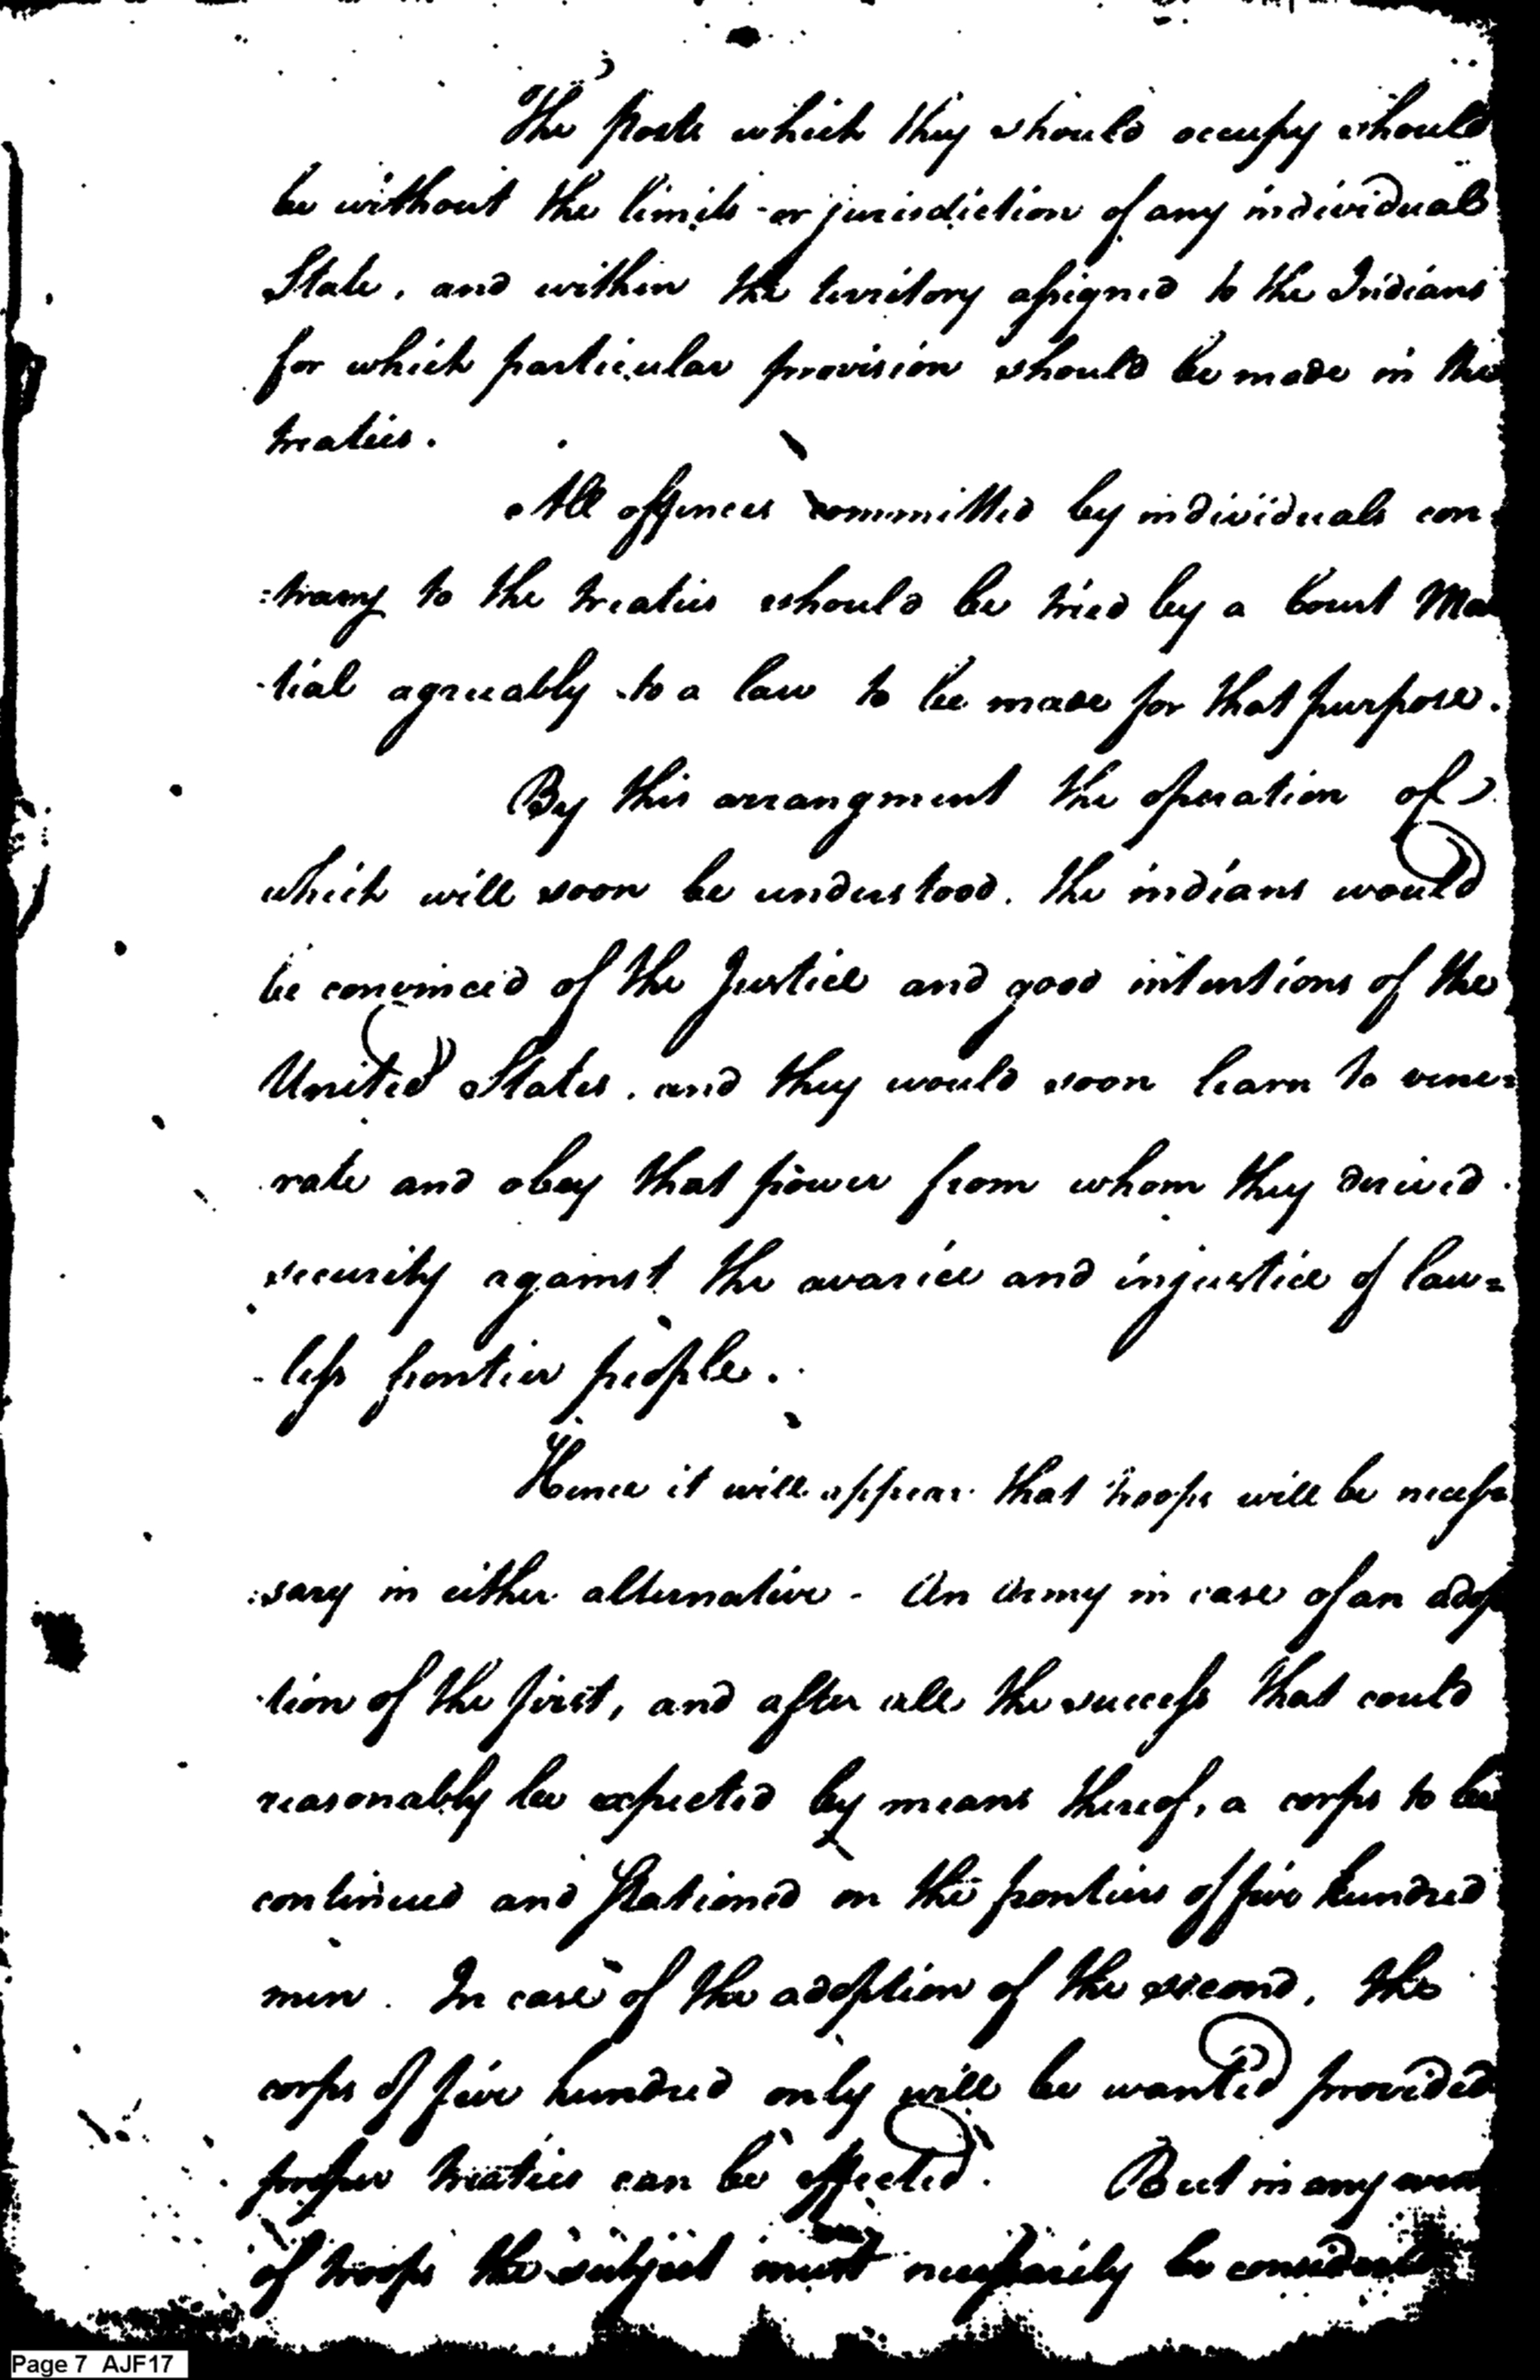 The posts which they should occupy should
be without the limits or jurisdiction of any individual
State, and within the territory assigned to the Indians
for which particular provision should be made in the
treaties.
All offences committed by individuals con
=trary to the treaties should be tried by a Court Mar
-tial agreeably to a law to be made for that purpose.
By this arrangment the operation of
which will soon be understood, the indians would
be convinced of the Justice and good intentions of the
United States, and they would soon learn to vene=
rate and obey that power from whom they derived
security against the avarice and injustice of law=
-less frontier people.
Hence it will appear that troops will be neces
:sary in either alternative - An Army in case of an adop
-tion of the first, and after all the success that could
reasonably be expected by means thereof, a corps to be
continued and stationed on the frontiers of five hundred
men. In case of the adoption of the second, the
corps of five hundred only will be wanted provided
proper treaties can be effected. But in any
of troops the subject must necessarily be considered
Page 7 AJF17